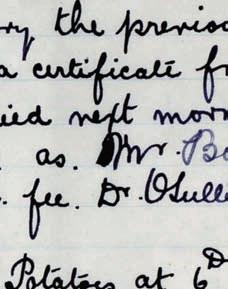 ry the previou
a certificate fr
ied next morn
. as. Mr. Bo
. fee. Dr. OSulle
Potatoes at 6D